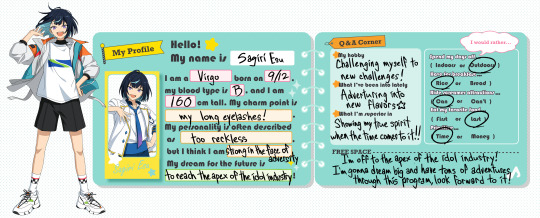 My Profile
Hello!
My name is Sagiri Eou
I am a Virgo born on 9/12,
my blood type is B, and I am
160 cm tall. My charm point is
my long eyelashes!
My personality is often described
as too reckless
but I think I am strong in the face of adversity
My dream for the future is
to reach the apex of the idol industry!
Q&A Corner
My hobby
Challenging myself to
new challenges!
What I've been into lately
Adventuring into
new flavors☆
What I'm superior in
Showing my true spirit
when the time comes to it!!
I would rather...
Spend my days off...
( Indoors or Outdoors )
( Rice or Bread )
( Can or Can't )
( First or Last )
( Time or Money )
FREE SPACE
I'm off to the apex of the idol industry!
I'm gonna dream big and have tons of adventures
through this program, look forward to it!